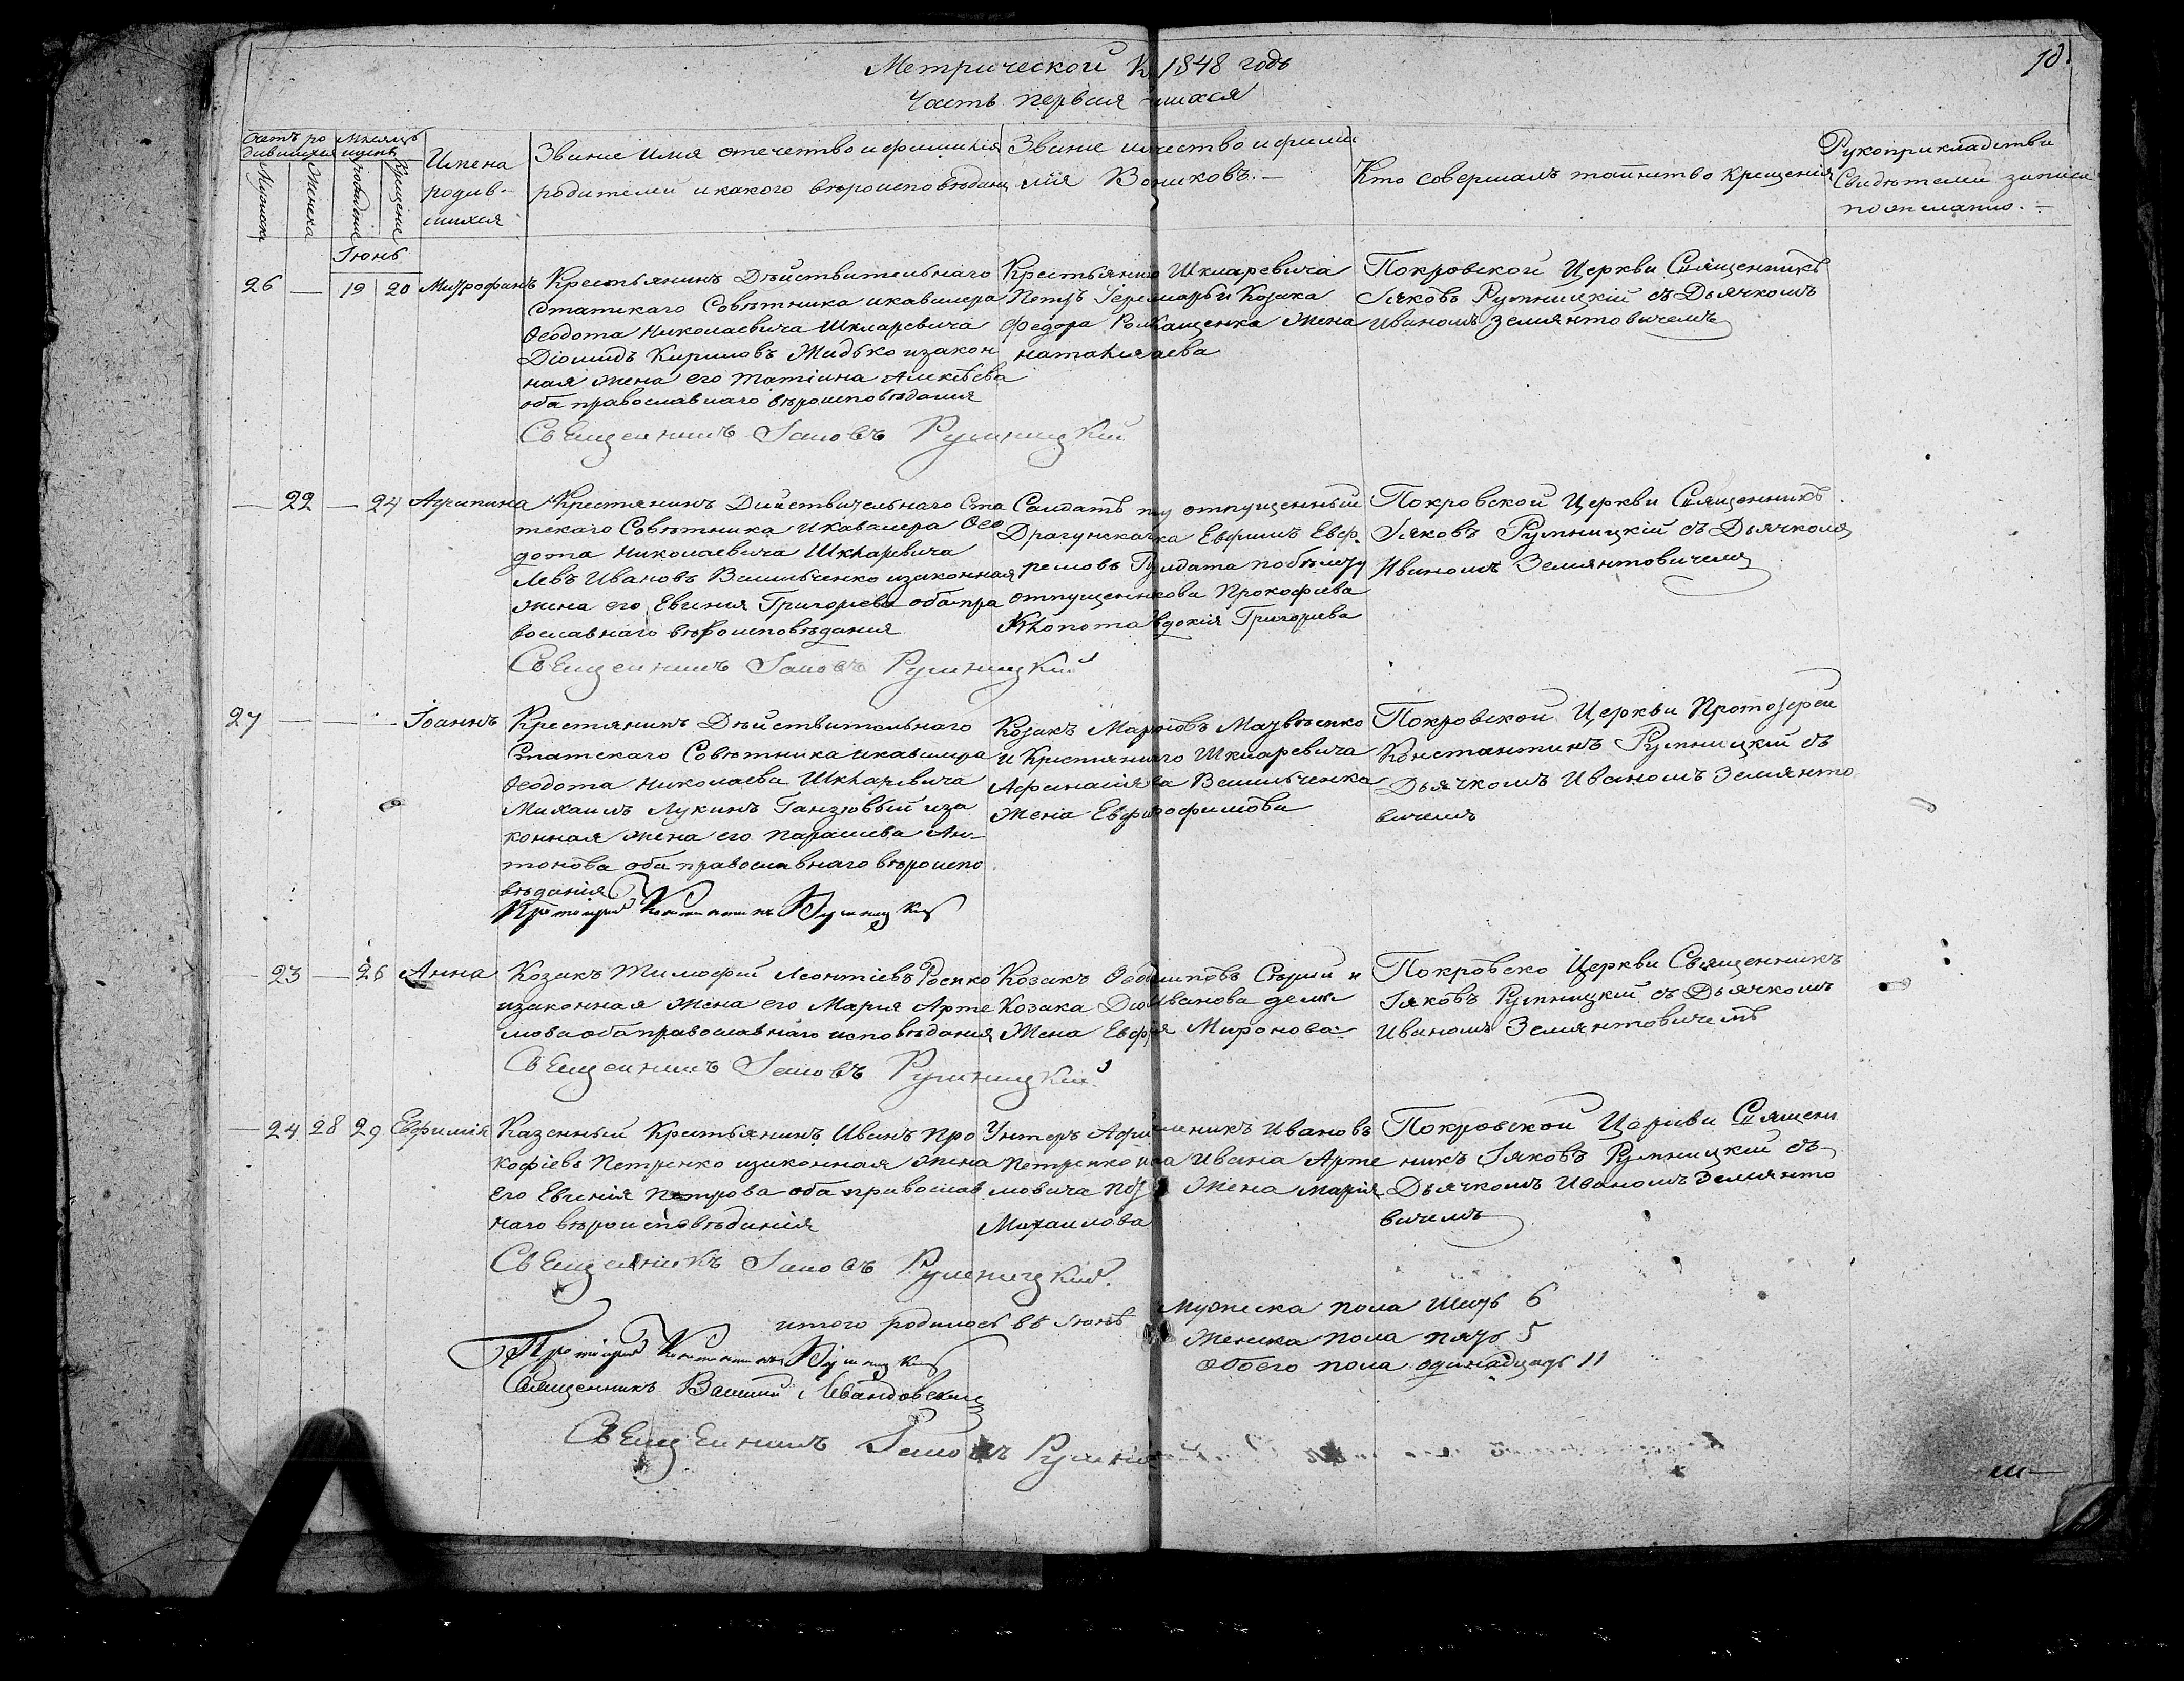 Метрической К 1848 годъ
10
Часть первая шихся
Счетъ ро
дившихся
Мѣсяцъ
и день
Мужеска
Женска
Рожденіе
Крещеніе
Имена
родив-
шихся
Званіе имя отечество и фамилія
родителей и какого вѣроисповѣдан
Званіе и чество и фами
лія Воприковъ.-
Кто совершалъ таинство крещенія
Рукоприкладства
Свидѣтелей записи
по желанію.-
Іюнь
26 — 19 20 Митрофанъ
Крестьянинъ Дѣйствительнаго
Статскаго Совѣтника и кавалера
Ѳеодота Николаевича Шкляревича
Діомидъ Кириловъ Жидько и закон
ная жена его Татіана Алексѣева
оба православнаго вѣроисповѣданія
Священникъ Іаковъ Румницкій
Крестьянинъ Шкляревича
Петръ и Козака
Федора Жена
Ната
Покровской Церкви Священникъ
Іаковъ Румницкій съ Дьячкомъ
Иваномъ Земянтовичемъ
— 22 — 24 Агрипина
Крестянинъ Дийствительнаго Ста
тскаго Совѣтника и кавалера Ѳео
дота Николаевича Шкляревича
Левъ Ивановъ Васильченко и законная
жена его Евгения Григориева оба пра
вославнаго вѣроисповѣдания
Священникъ Іаковъ Румницкій
Салдатъ отпущенный
Драгунска ка Евфимъ Евф
ремовъ дата по билету
отпущен Прокофиева
докія Григориева
Покровской Церкви Священникъ
Іяковъ Румницкій съ Дьячкомъ
Иваномъ Земянтовичемъ
27 — — — Іоаннъ
Крестянинъ Дѣйствительнаго
Статскаго Совѣтника и кавалера
Ѳеодота Николаева Шкляревича
Михаилъ Лукинъ Ганзювый и за
конная жена его Параскева Ан-
тонова оба православнаго вѣроиспо
вѣданія
Протоіерей Константинъ Румницкій
Козакъ Мар новъ Матвѣенко
и Крестянин го Шкляревича
Афанасія ва Васильченка
Жена Евфро офимова
Покровской Церкви Протоіерей
Константинъ Румницкій съ
Дьячкомъ Иваномъ Земянто
вичемъ
— 23 — 26 Анна
Козакъ Тимофій Леонтіевъ Роенко
и законная жена его Мария Арте
мова оба православнаго исповѣдания
Священникъ Іаковъ Румницкій
Козакъ Ѳеод иповъ Сѣрый и
Козака Дио Иванова
Жена Евф я Миронова
Покровско Церкви Священникъ
Іяковъ Румницкій съ Дьячкомъ
Иваномъ Земянтовичемъ
— 24 28 29 Евфимія
Казенный Крестьянинъ Иванъ Про
кофіевъ Петренко и законная жена
его Евгенія Петрова оба православ
наго вѣроисповѣданія
Священникъ Іаковъ Румницкий
Унтеръ Афи никъ Ивановъ
Петренко и ка Ивана Арте
мовича Жена Марія
Михаилова
Покровской Церкви Священ
никъ Іяковъ Румницкій съ
Дьячкомъ Иваномъ Земянто
вичемъ
итого родилось въ Іюнѣ
Мужеска пола шесть 6
Женска пола пять 5
обоего пола одинадцать 11
Протоіерей Константинъ Румницкій
Священникъ Василий Левандовский
Священникъ Іаковъ Румни